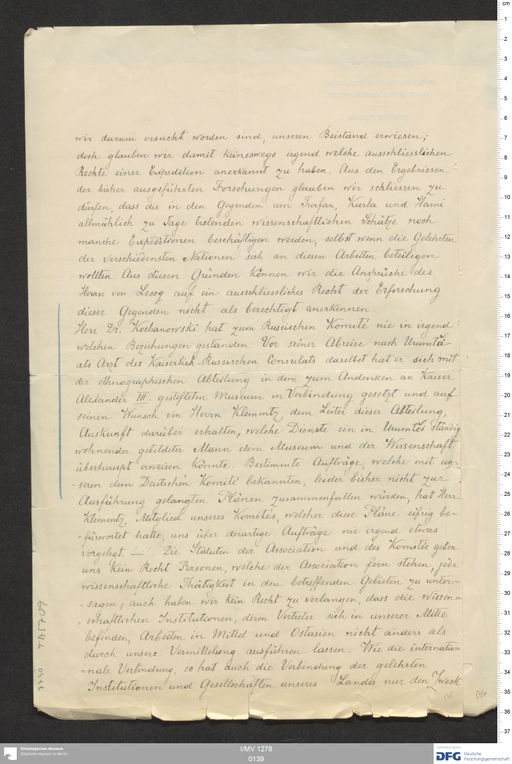 wir darum ersucht worden sind, unseren Beistand erwiesen;
doch glauben wir damit keineswegs irgend welche ausschliesslichen
Rechte einer Expedition anerkannt zu haben. Aus den Ergebnissen
der bisher ausgeführten Forschungen glauben wir schliessen zu
dürfen, dass die in den Gegenden um Turfan, Kurla und Hami
allmählich zu Tage tretenden wissenschaftlichen Schätze noch
manche Expeditionen beschäftigen werden, selbst wenn die Gelehrten
der verschiedensten Nationen sich an diesen Arbeiten beteiligen
wollten. Aus diesen Gründen können wir die Ansprüche des
Herrn von Lecoq auf ein ausschliessliches Recht der Erforschung
dieser Gegenden nicht als berechtigt anerkennen.
Herr Dr. Kochanowski hat zum Russischen Komité nie in irgend
welchen Beziehungen gestanden. Vor seiner Abreise nach Urumtsi
als Arzt des Kaiserlich-Russischen Consulats daselbst hat er sich mit
der ethnographischen Abteilung in dem zum Andenken an Kaiser
Alexander III. gestifteten Museum in Verbindung gesetzt und auf
seinen Wunsch von Herrn Klementz, dem Leiter dieser Abteilung,
Auskunft darüber erhalten, welche Dienste ein in Urumtsi ständig
wohnender gebildeter Mann dem Museum und der Wissenschaft
überhaupt erweisen könnte. Bestimmte Aufträge, welche mit un-
seren dem Deutschen Komité bekannten, leider bisher nicht zur
Ausführung gelangten Plänen zusammenfallen würden, hat Herr
Klementz, Mitglied unseres Komités, welcher diese Pläne eifrig be-
fürwortet hatte, uns über derartige Aufträge nie irgend etwas
vorgelegt. — Die Statuten der Association und des Komités geben
uns kein Recht Personen, welche der Association fern stehen, jede
wissenschaftliche Thätigkeit in den betreffenden Gebieten zu unter-
sagen; auch haben wir kein Recht zu verlangen, dass die wissen-
schaftlichen Institutionen, deren Vertreter sich in unserer Mitte
befinden, Arbeiten in Mittel und Ostasien nicht anders als
durch unsere Vermittelung ausführen lassen. Wie die internatio-
nale Verbindung, so hat auch die Verbindung der gelehrten
Institutionen und Gesellschaften unseres Landes nur den Zweck
Ethnologisches Museum
Staatliche Museen zu Berlin
I/MV 1278
0139
DFG Deutsche
Forschungsgemeinschaft